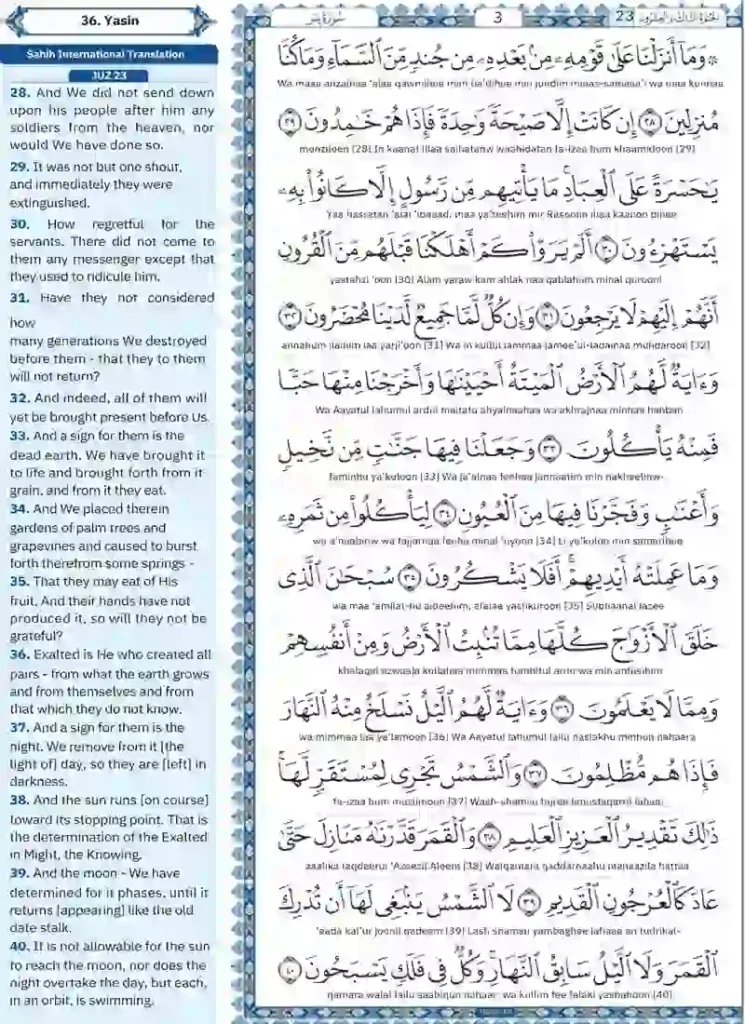 36. Yasin
Sahih International Translation
JUZ 23
28. And We did not send down
upon his people after him any
soldiers from the heaven, nor
would We have done so.
29. It was not but one shout,
and immediately they were
extinguished.
30. How regretful for the
servants. There did not come to
them any messenger except that
they used to ridicule him.
31. Have they not considered
how
many generations We destroyed
before them - that they to them
will not return?
32. And indeed, all of them will
yet be brought present before Us.
33. And a sign for them is the
dead earth. We have brought it
to life and brought forth from it
grain, and from it they eat.
34. And We placed therein
gardens of palm trees and
grapevines and caused to burst
forth therefrom some springs -
35. That they may eat of His
fruit. And their hands have not
produced it, so will they not be
grateful?
36. Exalted is He who created all
pairs - from what the earth grows
and from themselves and from
that which they do not know.
37. And a sign for them is the
night. We remove from it [the
light of] day, so they are [left] in
darkness.
38. And the sun runs [on course]
toward its stopping point. That is
the determination of the Exalted
in Might, the Knowing.
39. And the moon - We have
determined for it phases, until it
returns [appearing] like the old
date stalk.
40. It is not allowable for the sun
to reach the moon, nor does the
night overtake the day, but each,
in an orbit, is swimming.
سُورَةُ يسٓ
3
23 الجزء الثالث والعشرون
۞ وَمَآ أَنزَلْنَا عَلَىٰ قَوْمِهِۦ مِنۢ بَعْدِهِۦ مِن جُندٍ مِّنَ ٱلسَّمَآءِ وَمَا كُنَّا
Wa maaa anzalnaa 'alaa qawmihee mim ba'dihee min jundim minas-samaaa'i wa maa kunnaa
مُنزِلِينَ ٢٨ إِن كَانَتْ إِلَّا صَيْحَةً وَٰحِدَةً فَإِذَا هُمْ خَٰمِدُونَ ٢٩
munzileen [28] In kaanat illaa saihatanw waahidatan fa-izaa hum khaamidoon [29]
يَٰحَسْرَةً عَلَى ٱلْعِبَادِ مَا يَأْتِيهِم مِّن رَّسُولٍ إِلَّا كَانُوا۟ بِهِۦ
Yaa hasratan 'alal 'ibaaad, maa ya'teehim mir Rasoolin illaa kaanoo bihee
يَسْتَهْزِءُونَ ٣٠ أَلَمْ يَرَوْا۟ كَمْ أَهْلَكْنَا قَبْلَهُم مِّنَ ٱلْقُرُونِ
yastahzi 'oon [30] Alam yaraw kam ahlak naa qablahum minal qurooni
أَنَّهُمْ إِلَيْهِمْ لَا يَرْجِعُونَ ٣١ وَإِن كُلٌّ لَّمَّا جَمِيعٌ لَّدَيْنَا مُحْضَرُونَ ٣٢
annahum ilaihim laa yarji'oon [31] Wa in kullul lammaa jamee'ul-ladainaa muhdaroon [32]
وَءَايَةٌ لَّهُمُ ٱلْأَرْضُ ٱلْمَيْتَةُ أَحْيَيْنَٰهَا وَأَخْرَجْنَا مِنْهَا حَبًّا
Wa Aayatul lahumul ardul maitatu ahyainaahaa wa akhrajnaa minhaa habban
فَمِنْهُ يَأْكُلُونَ ٣٣ وَجَعَلْنَا فِيهَا جَنَّٰتٍ مِّن نَّخِيلٍ
faminhu ya'kuloon [33] Wa ja'alnaa feehaa jannaatim min nakheelinw-
وَأَعْنَٰبٍ وَفَجَّرْنَا فِيهَا مِنَ ٱلْعُيُونِ ٣٤ لِيَأْكُلُوا۟ مِن ثَمَرِهِۦ
wa a'naabinw wa fajjarnaa feehaa minal 'uyoon [34] Li ya'kuloo min samarihee
وَمَا عَمِلَتْهُ أَيْدِيهِمْ أَفَلَا يَشْكُرُونَ ٣٥ سُبْحَٰنَ ٱلَّذِى
wa maa 'amilat-hu aideehim, afalaa yashkuroon [35] Subhaanal lazee
خَلَقَ ٱلْأَزْوَٰجَ كُلَّهَا مِمَّا تُنۢبِتُ ٱلْأَرْضُ وَمِنْ أَنفُسِهِمْ
khalaqal azwaaja kullahaa mimmaa tunbitul ardu wa min anfusihim
وَمِمَّا لَا يَعْلَمُونَ ٣٦ وَءَايَةٌ لَّهُمُ ٱلَّيْلُ نَسْلَخُ مِنْهُ ٱلنَّهَارَ
wa mimmaa laa ya'lamoon [36] Wa Aayatul lahumul lailu naslakhu minhun nahaara
فَإِذَا هُم مُّظْلِمُونَ ٣٧ وَٱلشَّمْسُ تَجْرِى لِمُسْتَقَرٍّ لَّهَا
fa-izaa hum muzlimoon [37] Wash-shamsu tajree limustaqarril lahaa
ذَٰلِكَ تَقْدِيرُ ٱلْعَزِيزِ ٱلْعَلِيمِ ٣٨ وَٱلْقَمَرَ قَدَّرْنَٰهُ مَنَازِلَ حَتَّىٰ
zaalika taqdeerul 'Azeezil Aleem [38] Walqamara qaddarnaahu manaazila hattaa
عَادَ كَٱلْعُرْجُونِ ٱلْقَدِيمِ ٣٩ لَا ٱلشَّمْسُ يَنۢبَغِى لَهَآ أَن تُدْرِكَ
'aada kal'ur joonil qadeem [39] Lash shamsu yambaghee lahaaa an tudrikal-
ٱلْقَمَرَ وَلَا ٱلَّيْلُ سَابِقُ ٱلنَّهَارِ وَكُلٌّ فِى فَلَكٍ يَسْبَحُونَ ٤٠
qamara walal lailu saabiqun nahaar, wa kullun fee falaki yasbahoon [40]